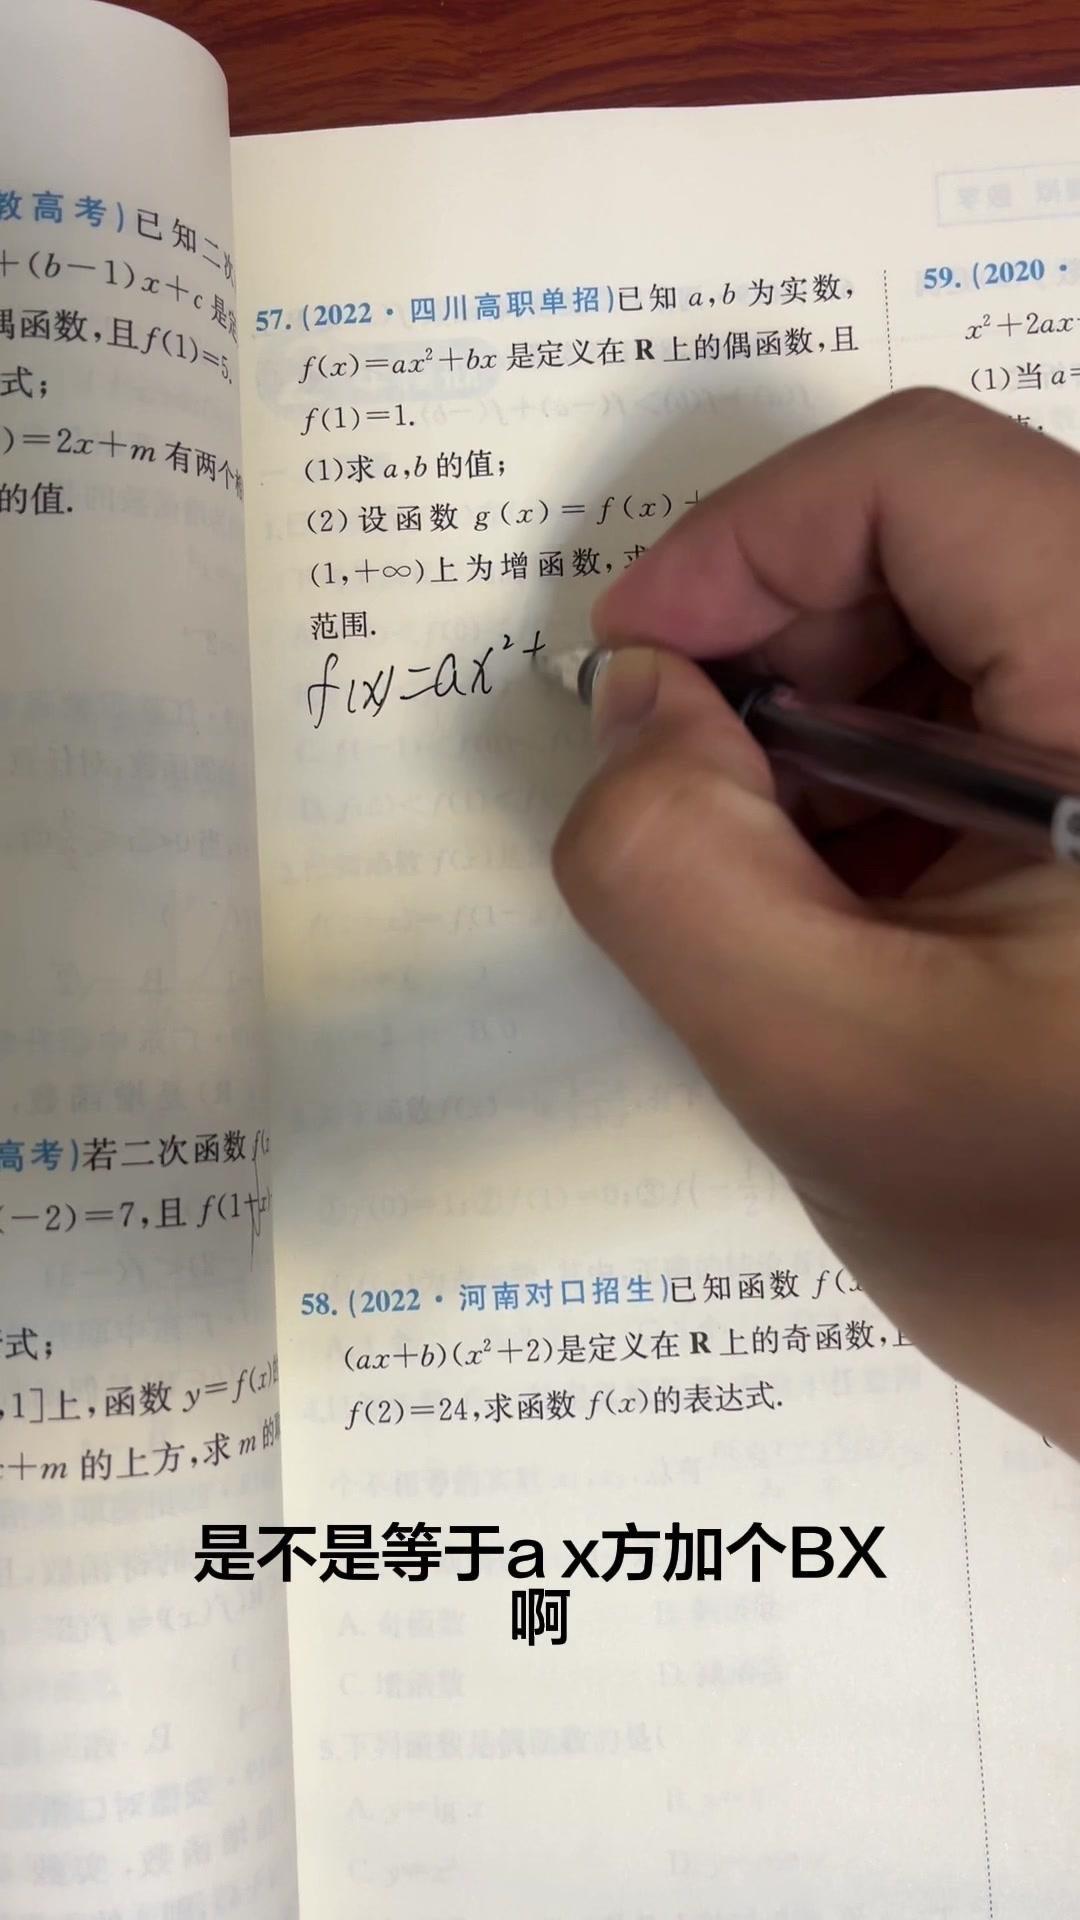 教高考)已知二次
+(b-1)x+c是定
偶函数,且f(1)=5.
式;
)=2x+m有两个相
的值.
高考)若二次函数f(x
(-2)=7,且f(1+x)
式;
,1]上,函数y=f(x)的
+m的上方,求m的取
57.(2022·四川高职单招)已知a,b为实数,
f(x)=ax²+bx是定义在R上的偶函数,且
f(1)=1.
(1)求a,b的值;
(2)设函数g(x)=f(x)+
(1,+∞)上为增函数,求
范围.
f(x)=ax²+
58.(2022·河南对口招生)已知函数f(x
(ax+b)(x²+2)是定义在R上的奇函数,且
f(2)=24,求函数f(x)的表达式.
59.(2020·
x²+2ax-
(1)当a=
值.
是不是等于a x方加个BX
啊